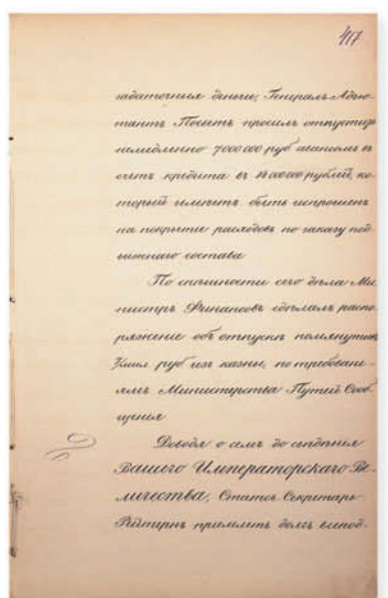 417
задаточныя деньги, Генералъ Адъю-
тантъ Посьетъ просилъ отпустить
немедленно 7000000 руб авансомъ въ
счетъ кредита въ 14000000 рублей, ко-
торый имѣетъ быть испрошенъ
на покрытіе расходовъ по заказу под-
вижнаго состава
По спѣшности сего дѣла Ми-
нистръ Финансовъ сдѣлалъ распо-
ряженіе объ отпускѣ помянутыхъ
7 мил руб изъ казны, по требовані-
ямъ Министерства Путей Сооб-
щенія
Доводя о семъ до свѣдѣнія
Вашего Императорскаго Ве-
личества, Статсъ Секретарь
Рейтернъ пріемлетъ долгъ всепод-